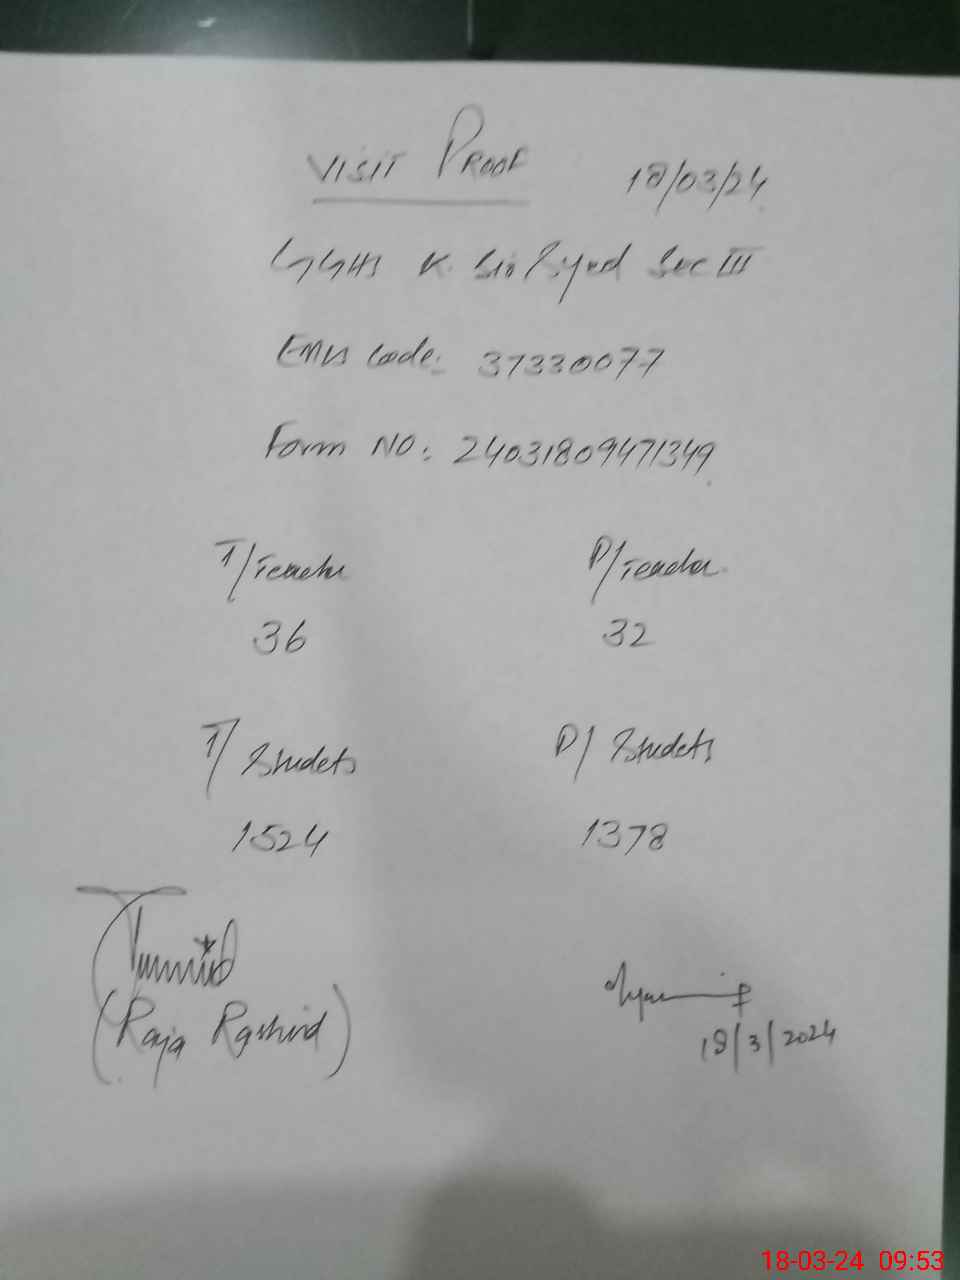 VISIT PROOF 18/03/24
GGHS K. Sir Syed Sec III
EMIS Code: 37330077
Form NO: 24031809471349
T/Teache P/Teacher
36 32
T/ Studets P/ Studets
1524 1378
(Raja Rashid)
18/3/2024
18-03-24 09:53